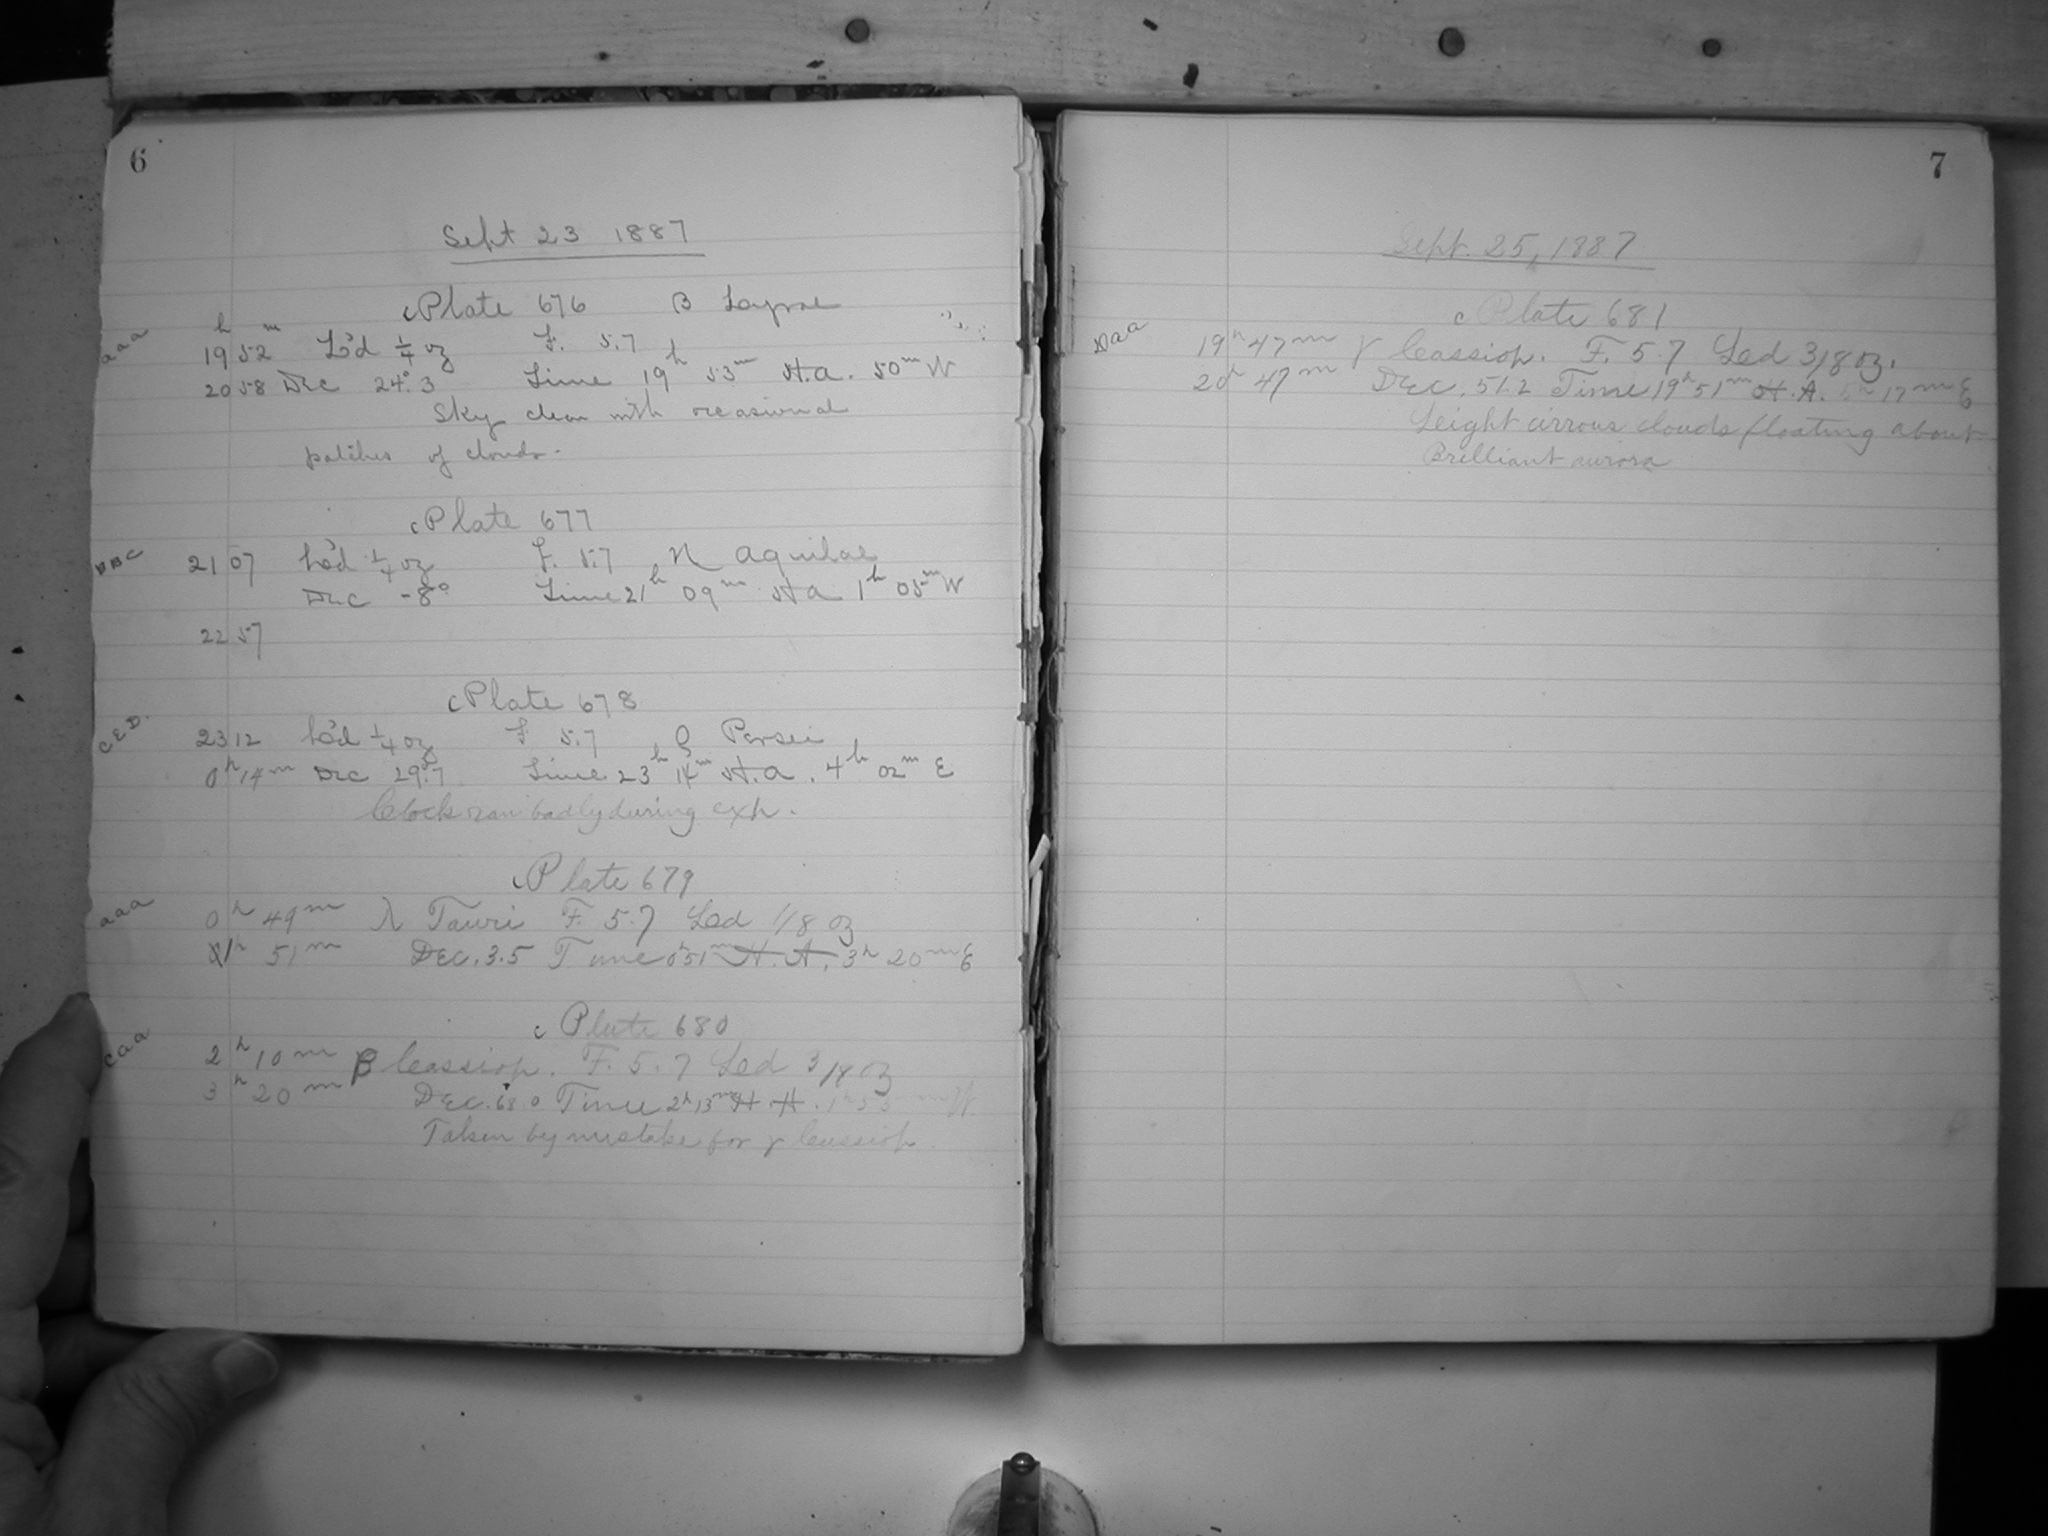 6
Sept 23 1887
c Plate 676 B Layrae
h m
aaa 19 52 L'd 1/4 oz F. 5.7
20 58 Dec 24°.3 Time 19h 53m H.a. 50m W
Sky clear with occasional
patches of clouds.
c Plate 677
BBC 21 07 L'd 1/4 oz F. 5.7 N Aquilae
Dec -8° Time 21h 09m H a 1h 05m W
22 57
c Plate 678
CED. 23 12 L'd 1/4 oz F 5.7 Persei
0h 14m Dec 29°.7 Time 23h 14m H.a. 4h 02m E
Clock ran badly during exp.
c Plate 679
aaa 0h 49m λ Tauri F. 5.7 Led 1/8 oz
1h 51m Dec. 3.5 Time 0h51m H.A. 3h 20m E
c Plate 680
caa 2h 10m β Cassiop. F. 5.7 Led 3/8 oz
3h 20m Dec. Time 2h 13m H.A. W.
Taken by mistake for γ Cassiop.
7
Sept. 25, 1887
c Plate 681
Daa 19h 47m γ Cassiop. F. 5.7 Led 3/8 oz.
20h 47m Dec. 51.2 Time 19h 51m H.A. 5h 17m E
Leight cirrous clouds floating about
Brilliant aurora